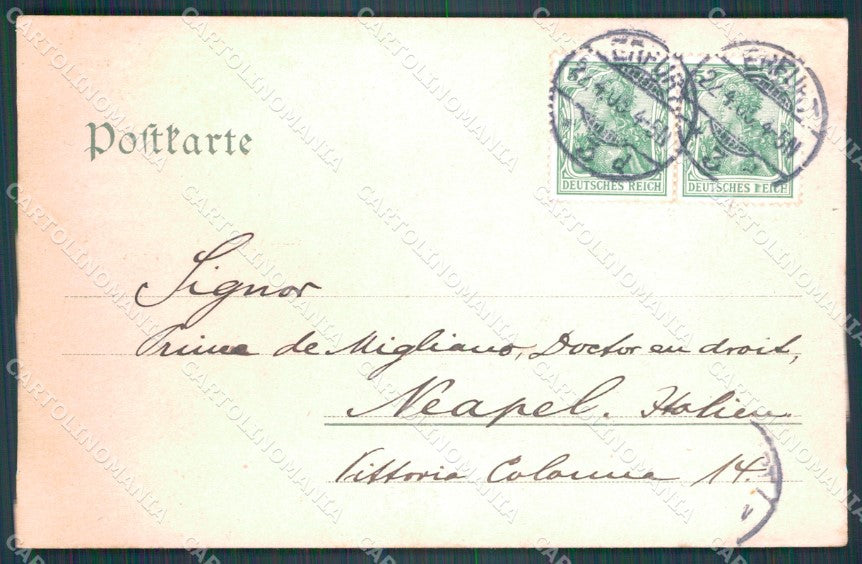 Postkarte
ERFURT
2. 4.03.4-5N
2 d
ERFURT
2. 4.03.4-5N
2
DEUTSCHES REICH
DEUTSCHES REICH
Signor
Prince de Migliano, Doctor en droit,
Neapel. Italien.
Vittoria Colonna 14.
CARTOLINOMANIA